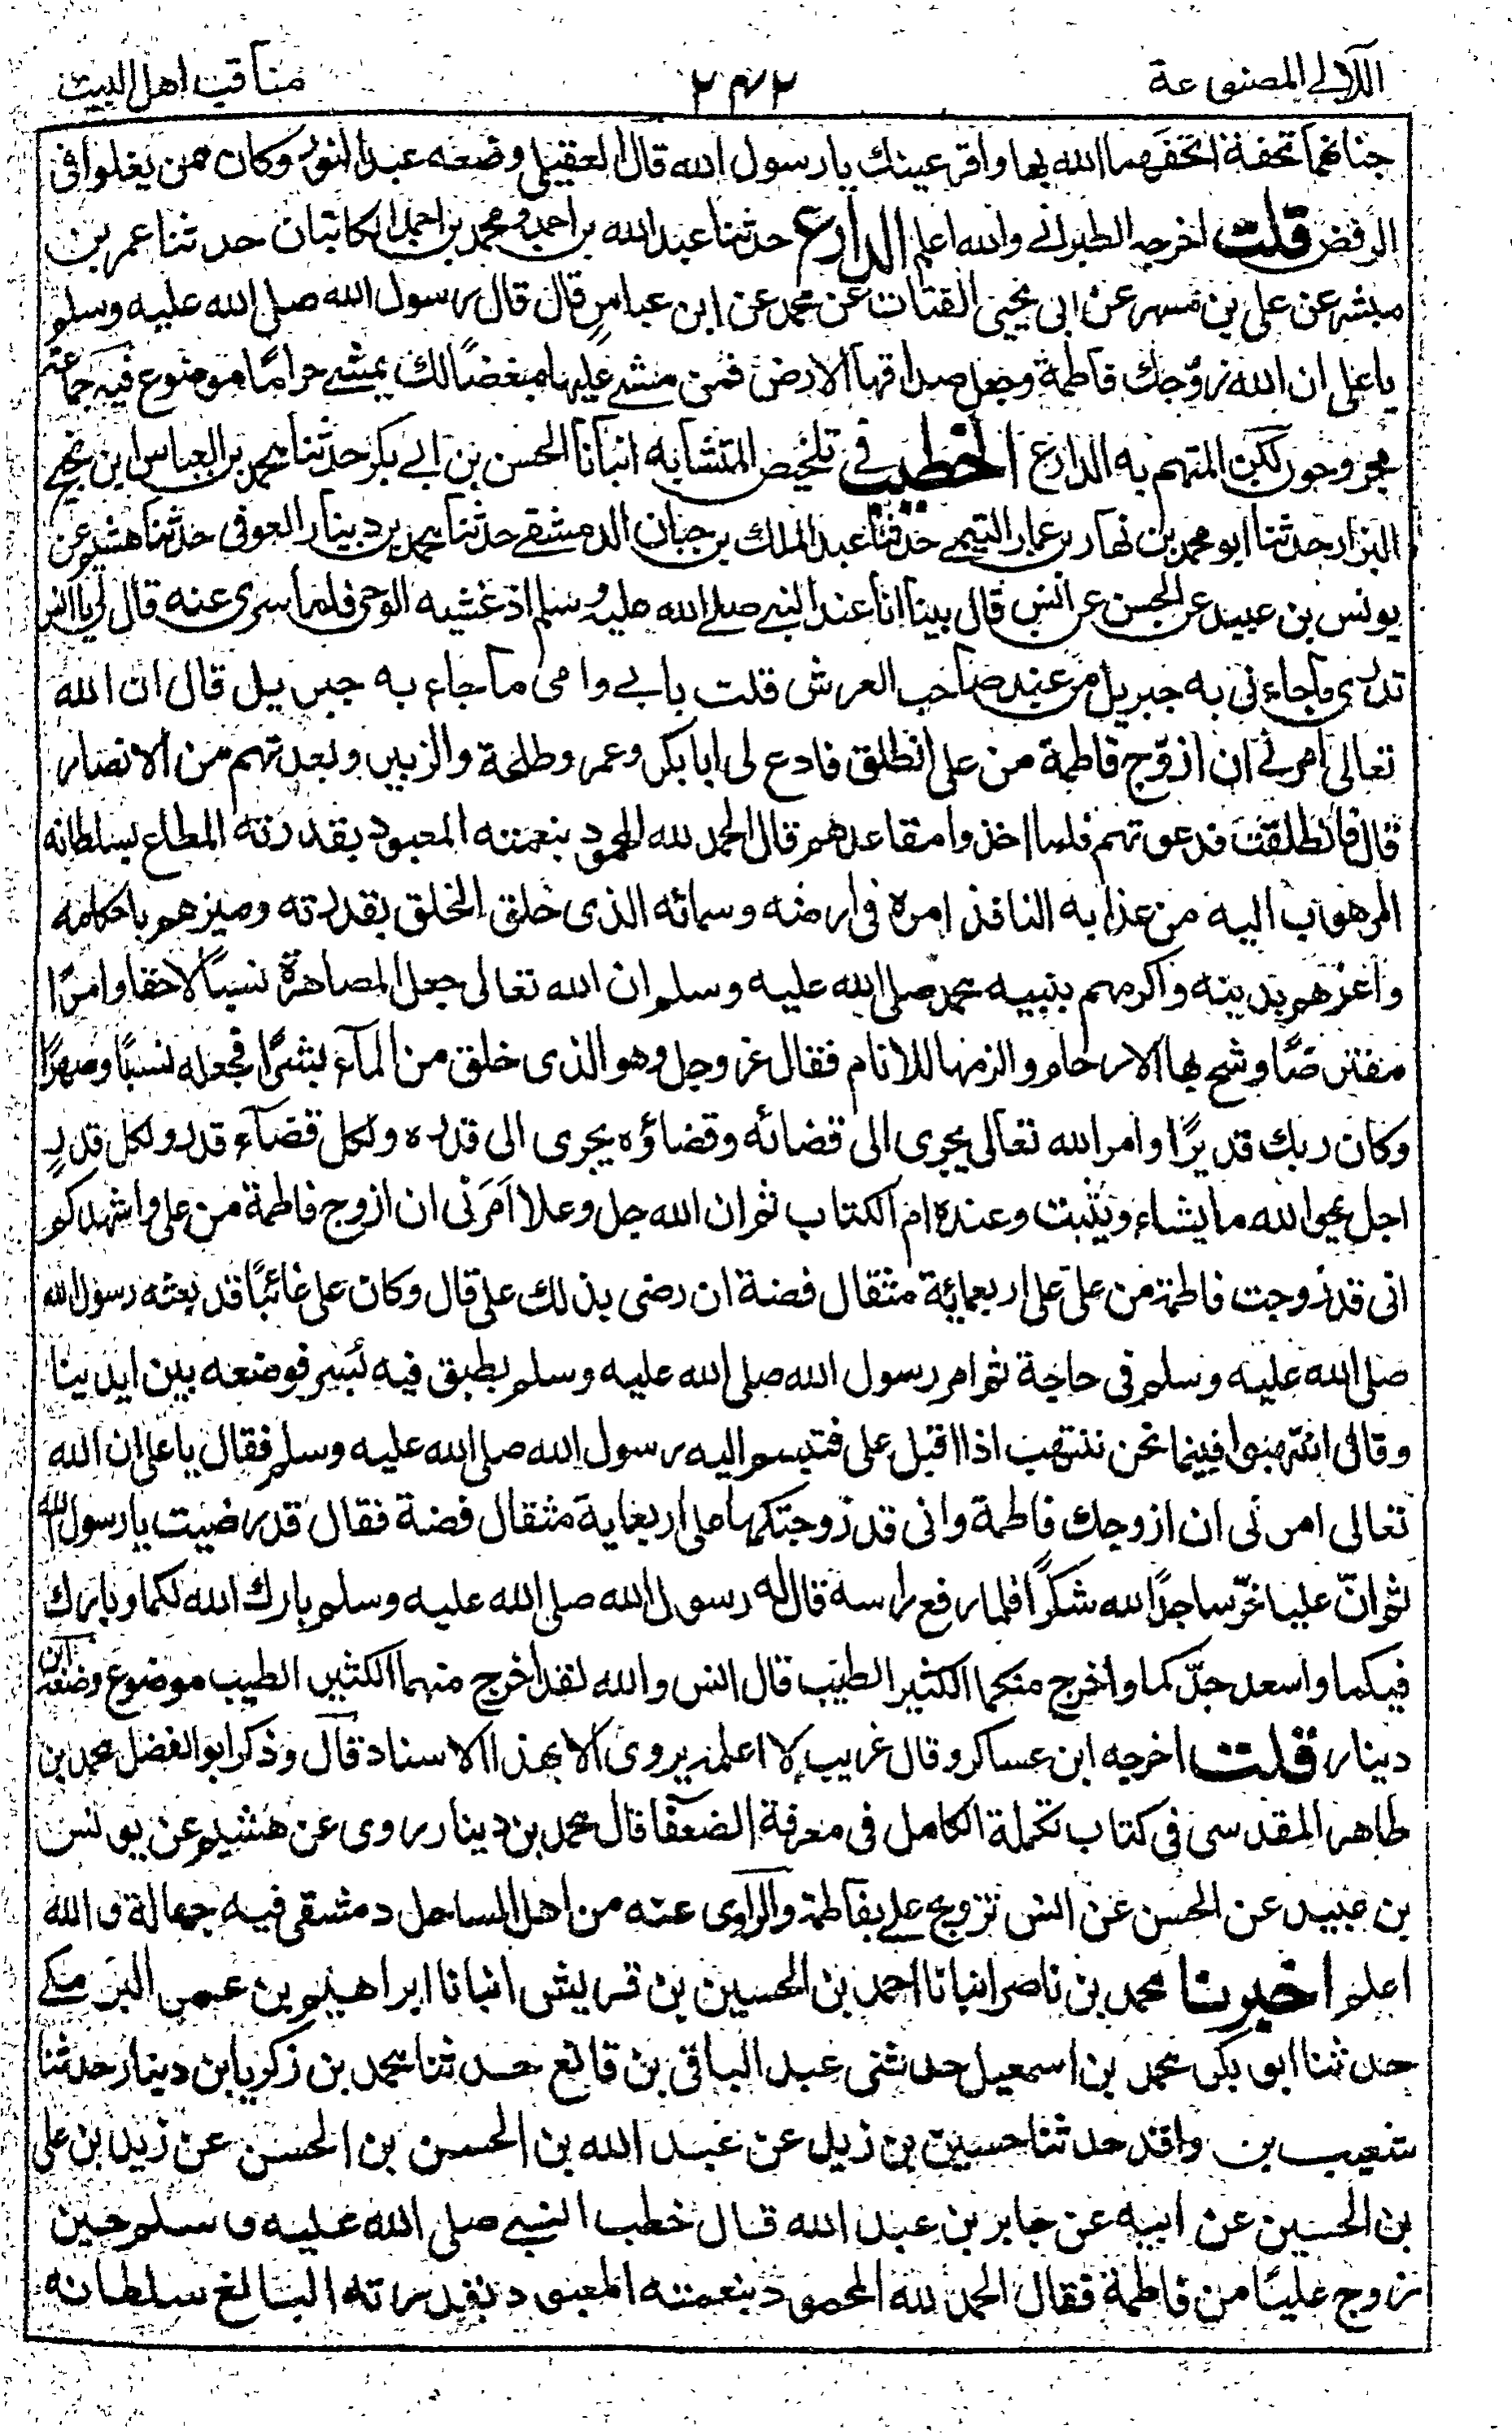 اللآلے المصنوعة ٢٤٢ مناقب اهل البيت
جنانهما تحفة اتحفهما الله بها واقر عينك يا رسول الله قال العقيلي وضعه عبد النور وكان ممن يغلوا فى
الرفض قلت اخرجه الطبرانے والله اعلم الدارع حدثنا عبد الله بن احمد و محمد بن احمد الكاتبان حدثنا عمر بن
مبشر عن على بن مسهر عن ابى يحيى القتات عن محمد عن ابن عباس قال قال رسول الله صلى الله عليه وسلم
يا على ان الله زوّجك فاطمة وجعل صداقها الارض فمن مشے عليها مبغضًا لك يمشے حرامًا موضوع فيه جماعة
مجروحون لكن المتهم به الدارع الخطيب فے تلخيص المتشابه انبأنا الحسن بن ابے بكر حدثنا محمد بن العباس ابن نجيح
البزار حدثنا ابو محمد بن نهار بن عمار التيمے حدثنا عبد الملك بن خيان الدمشقے حدثنا محمد بن دينار العوفى حدثنا هشيم عن
يونس بن عبيد عن الحسن عن انس قال بينا انا عند النبے صلے الله عليه وسلم اذ غشيه الوحى فلما سرى عنه قال لى يا انس
تدرى ما جاءنى به جبريل من عند صاحب العرش قلت بابے وامى ما جاء به جبريل قال ان الله
تعالى امرنے ان ازوّج فاطمة من على انطلق فادع لى ابا بكر وعمر وطلحة والزبير وبعدتهم من الانصار
قال فانطلقت فدعوتهم فلما اخذوا مقاعدهم قال الحمد لله المحمود بنعمته المعبود بقدرته المطاع بسلطانه
المرهوب اليه من عذابه النافذ امره فى ارضه وسمائه الذى خلق الخلق بقدرته وميزهم باحكامه
واعزهم بدينه واكرمهم بنبيه محمد صلى الله عليه وسلم ان الله تعالى جعل المصاهرة نسبًا لاحقا وامرًا
مفترضًا وشح بها الارحام والزمها للانام فقال عز وجل وهو الذى خلق من المآء بشرًا فجعله نسبًا وصهرًا
وكان ربك قديرًا وامر الله تعالى يجرى الى قضائه وقضاؤه يجرى الى قدره ولكل قضآء قدر ولكل قدرٍ
اجل يمحو الله ما يشاء ويثبت وعنده ام الكتاب ثم ان الله جل وعلا اَمَرَنى ان ازوج فاطمة من على واشهدكم
انى قد زوجت فاطمة من علىّ على اربعمائة مثقال فضة ان رضى بذلك على قال وكان على غائبًا قد بعثه رسول الله
صلى الله عليه وسلم فى حاجة ثم امر رسول الله صلى الله عليه وسلم بطبق فيه بُسر فوضعه بين ايدينا
وقال انتهبوا فبينما نحن ننتهب اذا اقبل على فتبسم اليه رسول الله صلى الله عليه وسلم فقال يا على ان الله
تعالى امرنى ان ازوجك فاطمة وانى قد زوجتكها على اربعماية مثقال فضة فقال قد رضيت يا رسول الله
ثم انّ عليا خرّ ساجدًا لله شكرًا فلما رفع راسه قال له رسول الله صلى الله عليه وسلم بارك الله لكما وبارك
فيكما واسعد جدّكما واخرج منكما الكثير الطيب قال انس والله لقد اخرج منهما الكثير الطيب موضوع وضعه ابن
دينار قلت اخرجه ابن عساكر وقال غريب لا اعلمه يروى الا بهذا الاسناد قال وذكر ابو الفضل محمد بن
طاهر المقدسى فى كتاب تكملة الكامل فى معرفة الضعفا قال محمد بن دينار روى عن هشيم عن يونس
بن عبيد عن الحسن عن انس تزويج على بفاطمة والراوى عنه من اهل الساحل دمشقى فيه جهالة والله
اعلم اخبرنا محمد بن ناصر انبانا احمد بن الحسين بن قريش انبانا ابراهيم بن عمر البرمكے
حدثنا ابو بكر محمد بن اسمعيل حدثنى عبد الباقى بن قانع حدثنا محمد بن زكريا ابن دينار حدثنا
شعيب بن واقد حدثنا حسين بن زيد عن عبد الله بن الحسن بن الحسن عن زيد بن على
بن الحسين عن ابيه عن جابر بن عبد الله قال خطب النبے صلى الله عليه وسلم حين
زوج عليًا من فاطمة فقال الحمد لله المحمود بنعمته المعبود بقدرته البالغ سلطانه